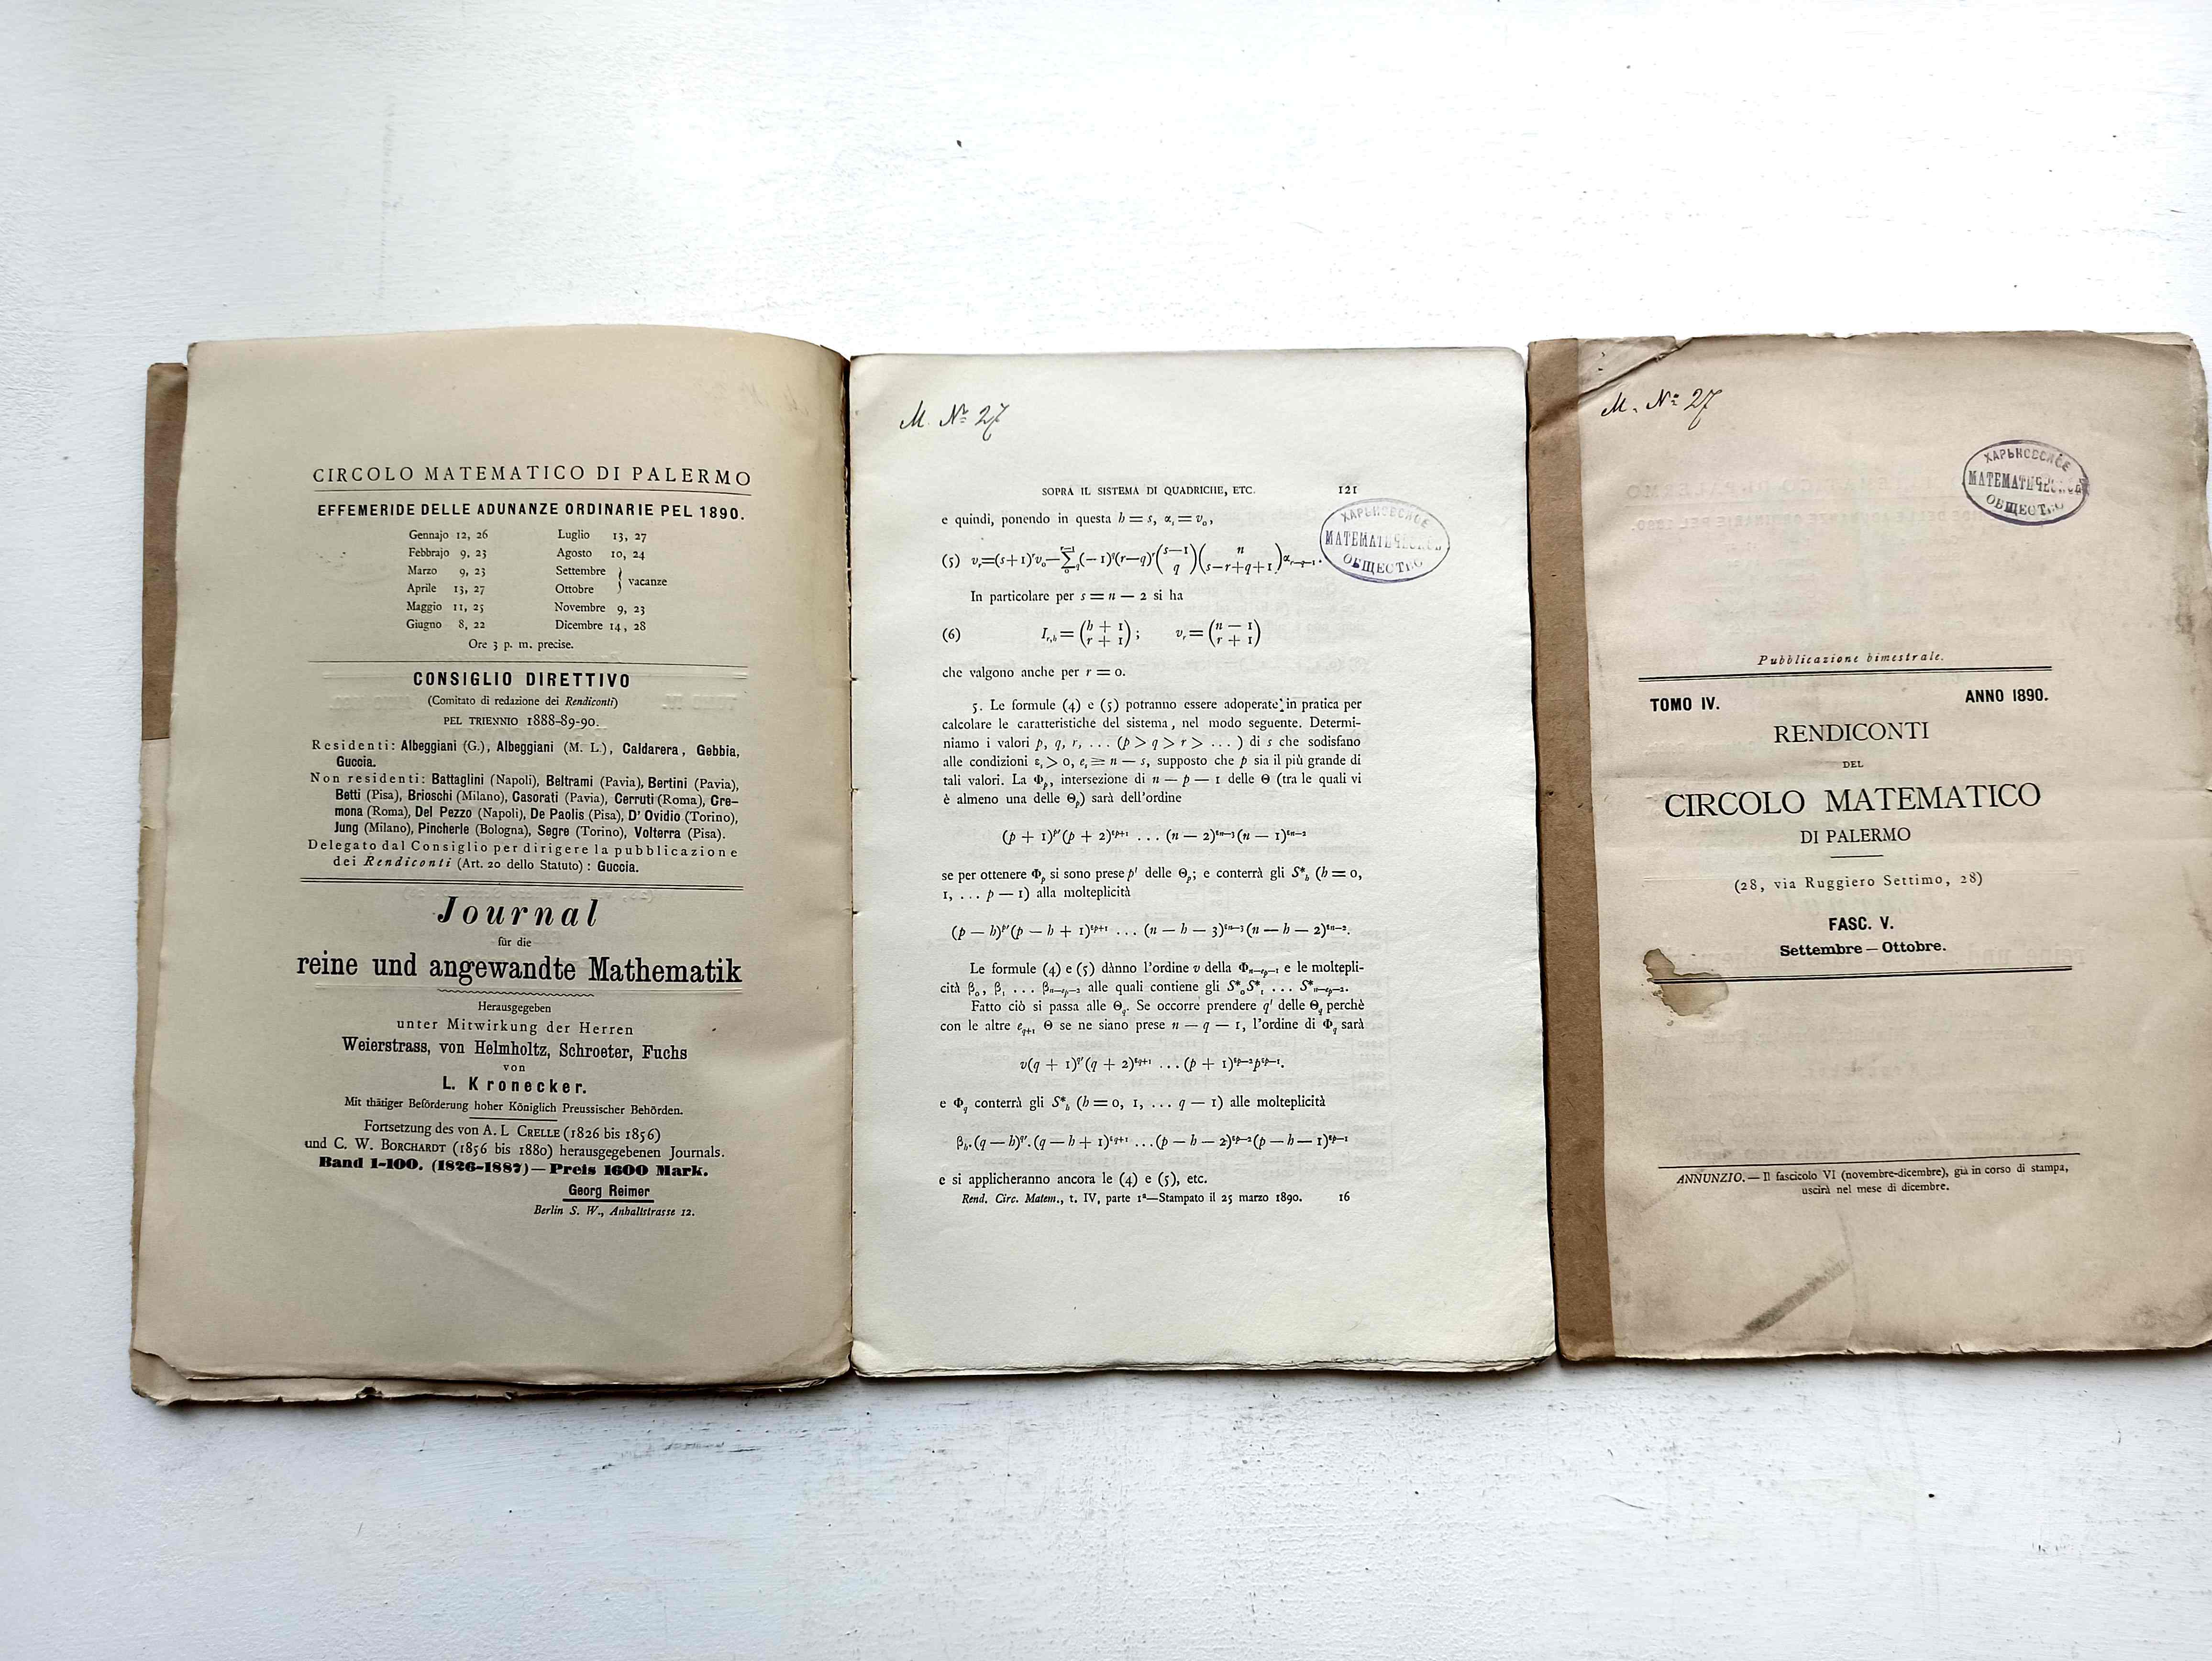 CIRCOLO MATEMATICO DI PALERMO
EFFEMERIDE DELLE ADUNANZE ORDINARIE PEL 1890.
Gennajo 12, 26 Luglio 13, 27
Febbrajo 9, 23 Agosto 10, 24
Marzo 9, 23 Settembre
Aprile 13, 27 Ottobre } vacanze
Maggio 11, 25 Novembre 9, 23
Giugno 8, 22 Dicembre 14, 28
Ore 3 p. m. precise.
CONSIGLIO DIRETTIVO
(Comitato di redazione dei Rendiconti)
PEL TRIENNIO 1888-89-90.
Residenti: Albeggiani (G.), Albeggiani (M. L.), Caldarera, Gebbia,
Guccia.
Non residenti: Battaglini (Napoli), Beltrami (Pavia), Bertini (Pavia),
Betti (Pisa), Brioschi (Milano), Casorati (Pavia), Cerruti (Roma), Cre-
mona (Roma), Del Pezzo (Napoli), De Paolis (Pisa), D' Ovidio (Torino),
Jung (Milano), Pincherle (Bologna), Segre (Torino), Volterra (Pisa).
Delegato dal Consiglio per dirigere la pubblicazione
dei Rendiconti (Art. 20 dello Statuto) : Guccia.
Journal
für die
reine und angewandte Mathematik
Herausgegeben
unter Mitwirkung der Herren
Weierstrass, von Helmholtz, Schroeter, Fuchs
von
L. Kronecker.
Mit thätiger Beförderung hoher Königlich Preussischer Behörden.
Fortsetzung des von A. L CRELLE (1826 bis 1856)
und C. W. BORCHARDT (1856 bis 1880) herausgegebenen Journals.
Band 1-100. (1826-1887) — Preis 1600 Mark.
Georg Reimer
Berlin S. W., Anhaltstrasse 12.
M. № 27
SOPRA IL SISTEMA DI QUADRICHE, ETC. 121
ХАРЬКОВСКОЕ
МАТЕМАТИЧЕСКОЕ
ОБЩЕСТВО
e quindi, ponendo in questa h = s, αᵢ = v₀,
(5) vᵣ=(s+1)ʳv₀—∑(—1)^q(r—q)ʳ(s—1 q)(n s—r+q+1)α_{r—q—1}.
In particolare per s = n — 2 si ha
(6) I_{r,h} = (h + 1 r + 1); vᵣ = (n — 1 r + 1)
che valgono anche per r = 0.
5. Le formule (4) e (5) potranno essere adoperate in pratica per
calcolare le caratteristiche del sistema, nel modo seguente. Determi-
niamo i valori p, q, r, ... (p > q > r > ... ) di s che sodisfano
alle condizioni εᵢ > 0, eᵢ ≥ n — s, supposto che p sia il più grande di
tali valori. La Φₚ, intersezione di n — p — 1 delle Θ (tra le quali vi
è almeno una delle Θₚ) sarà dell'ordine
(p + 1)^{p'}(p + 2)^{ε_{p+1}} ... (n — 2)^{ε_{n—3}}(n — 1)^{ε_{n—2}}
se per ottenere Φₚ si sono prese p' delle Θₚ; e conterrà gli S*ₕ (h = 0,
1, ... p — 1) alla molteplicità
(p — h)^{p'}(p — h + 1)^{ε_{p+1}} ... (n — h — 3)^{ε_{n—3}}(n — h — 2)^{ε_{n—2}}.
Le formule (4) e (5) dànno l'ordine v della Φ_{n—e_p—1} e le moltepli-
cità β₀, β₁ ... β_{n—e_p—2} alle quali contiene gli S*₀S*₁ ... S*_{n—e_p—2}.
Fatto ciò si passa alle Θ_q. Se occorre prendere q' delle Θ_q perchè
con le altre e_{q+1} Θ se ne siano prese n — q — 1, l'ordine di Φ_q sarà
v(q + 1)^{q'}(q + 2)^{ε_{q+1}} ... (p + 1)^{ε_{p—2}}p^{ε_{p—1}}.
e Φ_q conterrà gli S*ₕ (h = 0, 1, ... q — 1) alle molteplicità
βₕ.(q — h)^{q'}.(q — h + 1)^{ε_{q+1}} ... (p — h — 2)^{ε_{p—2}}(p — h — 1)^{ε_{p—1}}
e si applicheranno ancora le (4) e (5), etc.
Rend. Circ. Matem., t. IV, parte 1ª—Stampato il 25 marzo 1890. 16
M. № 27
ХАРЬКОВСКОЕ
МАТЕМАТИЧЕСКОЕ
ОБЩЕСТВО
Pubblicazione bimestrale.
TOMO IV. ANNO 1890.
RENDICONTI
DEL
CIRCOLO MATEMATICO
DI PALERMO
(28, via Ruggiero Settimo, 28)
FASC. V.
Settembre — Ottobre.
ANNUNZIO. — Il fascicolo VI (novembre-dicembre), già in corso di stampa,
uscirà nel mese di dicembre.